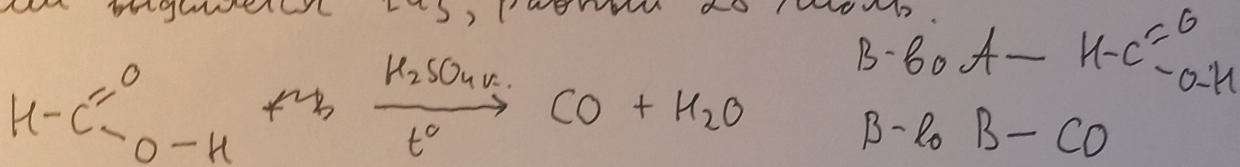 H-C=O O-H H₂SO₄ к. t° → CO + H₂O
В-во A — H-C=O O-H
В-во B — CO